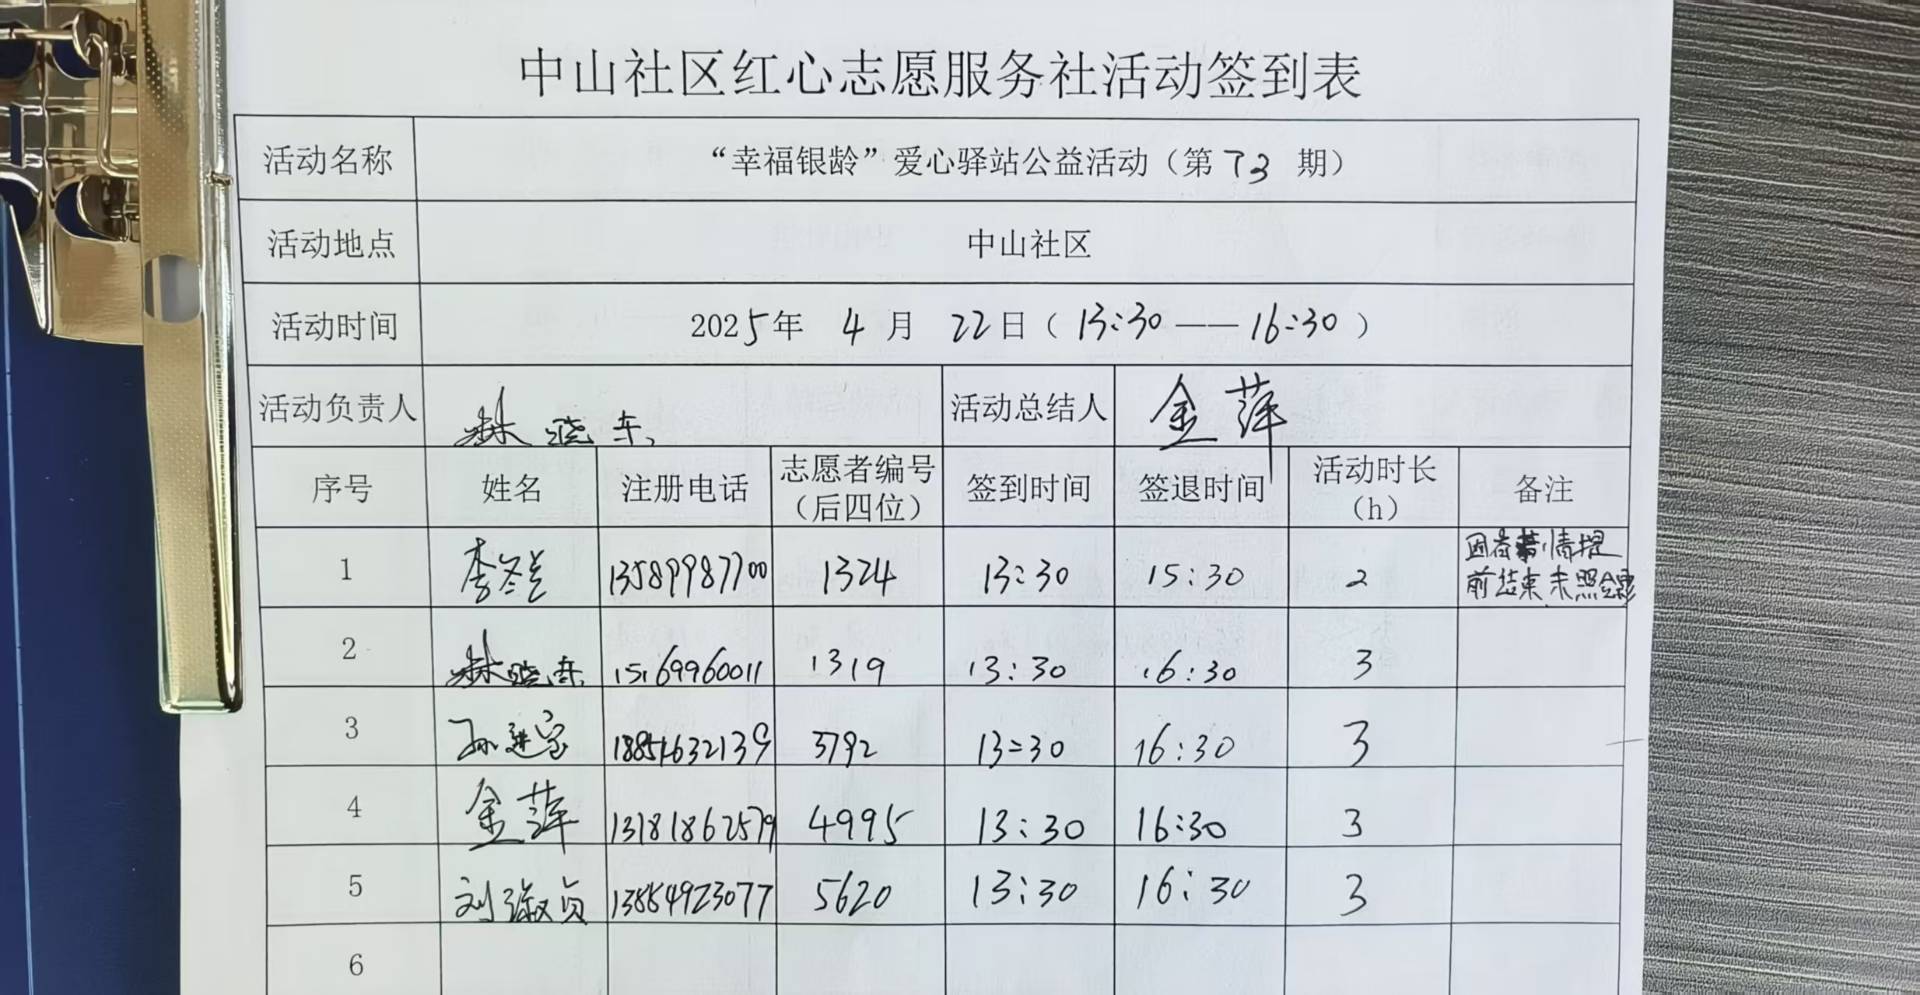 中山社区红心志愿服务社活动签到表
活动名称 “幸福银龄”爱心驿站公益活动（第 73 期）
活动地点 中山社区
活动时间 2025年 4 月 22日（13:30——16:30）
活动负责人 林晓东 活动总结人 金萍
序号 姓名 注册电话 志愿者编号（后四位） 签到时间 签退时间 活动时长（h） 备注
1 李 13589987700 1324 13:30 15:30 2 因有事情提
前结束,未照合影
2 林晓东 15169960011 1319 13:30 16:30 3
3 孙进宝 18851632139 3792 13:30 16:30 3
4 金萍 13181862579 4995 13:30 16:30 3
5 刘淑贞 13854923077 5620 13:30 16:30 3
6